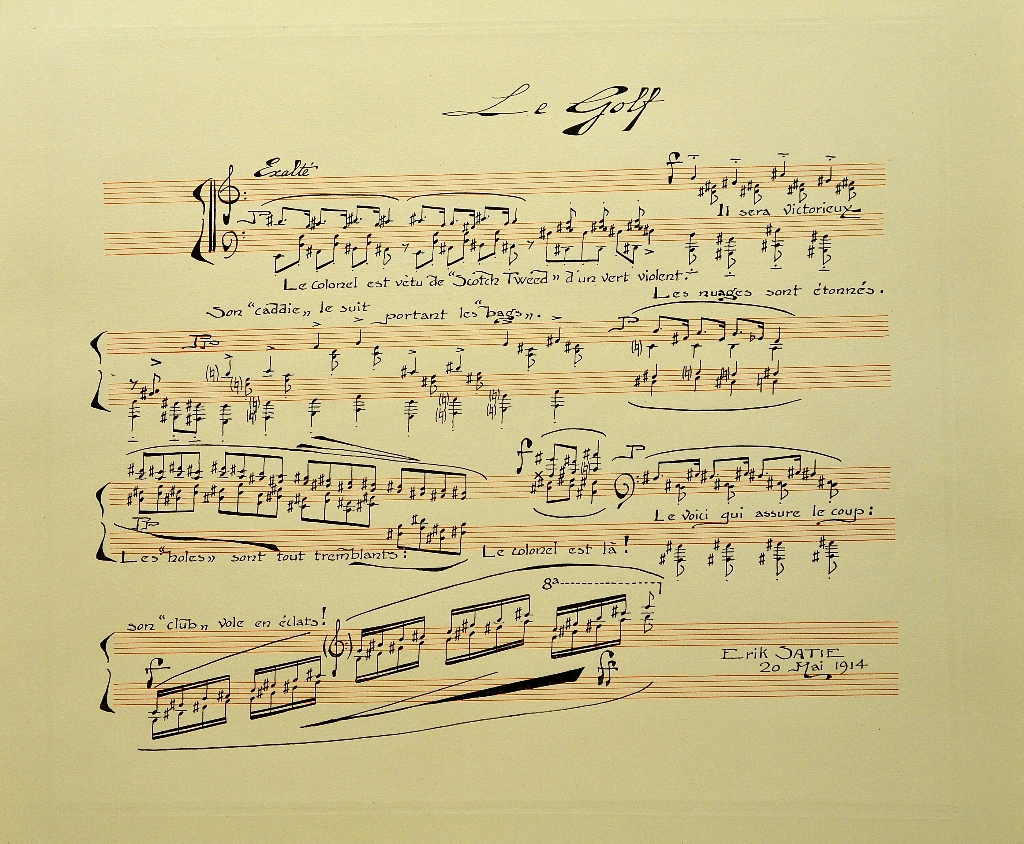 Le Golf
Exalté
Il sera victorieux
Le colonel est vêtu de "Scotch Tweed" d'un vert violent.
Les nuages sont étonnés.
Son "caddie" le suit portant les "bags".
Les "holes" sont tout tremblants:
Le colonel est là!
Le voici qui assure le coup:
son "club" vole en éclats!
8a
Erik SATIE
20 Mai 1914